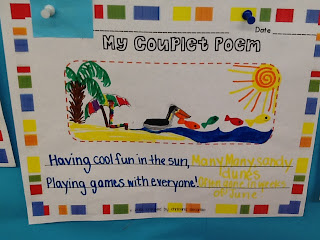 Date
My Couplet Poem
Having cool fun in the sun, Many Many sandy
dunes
Playing games with everyone!
of June